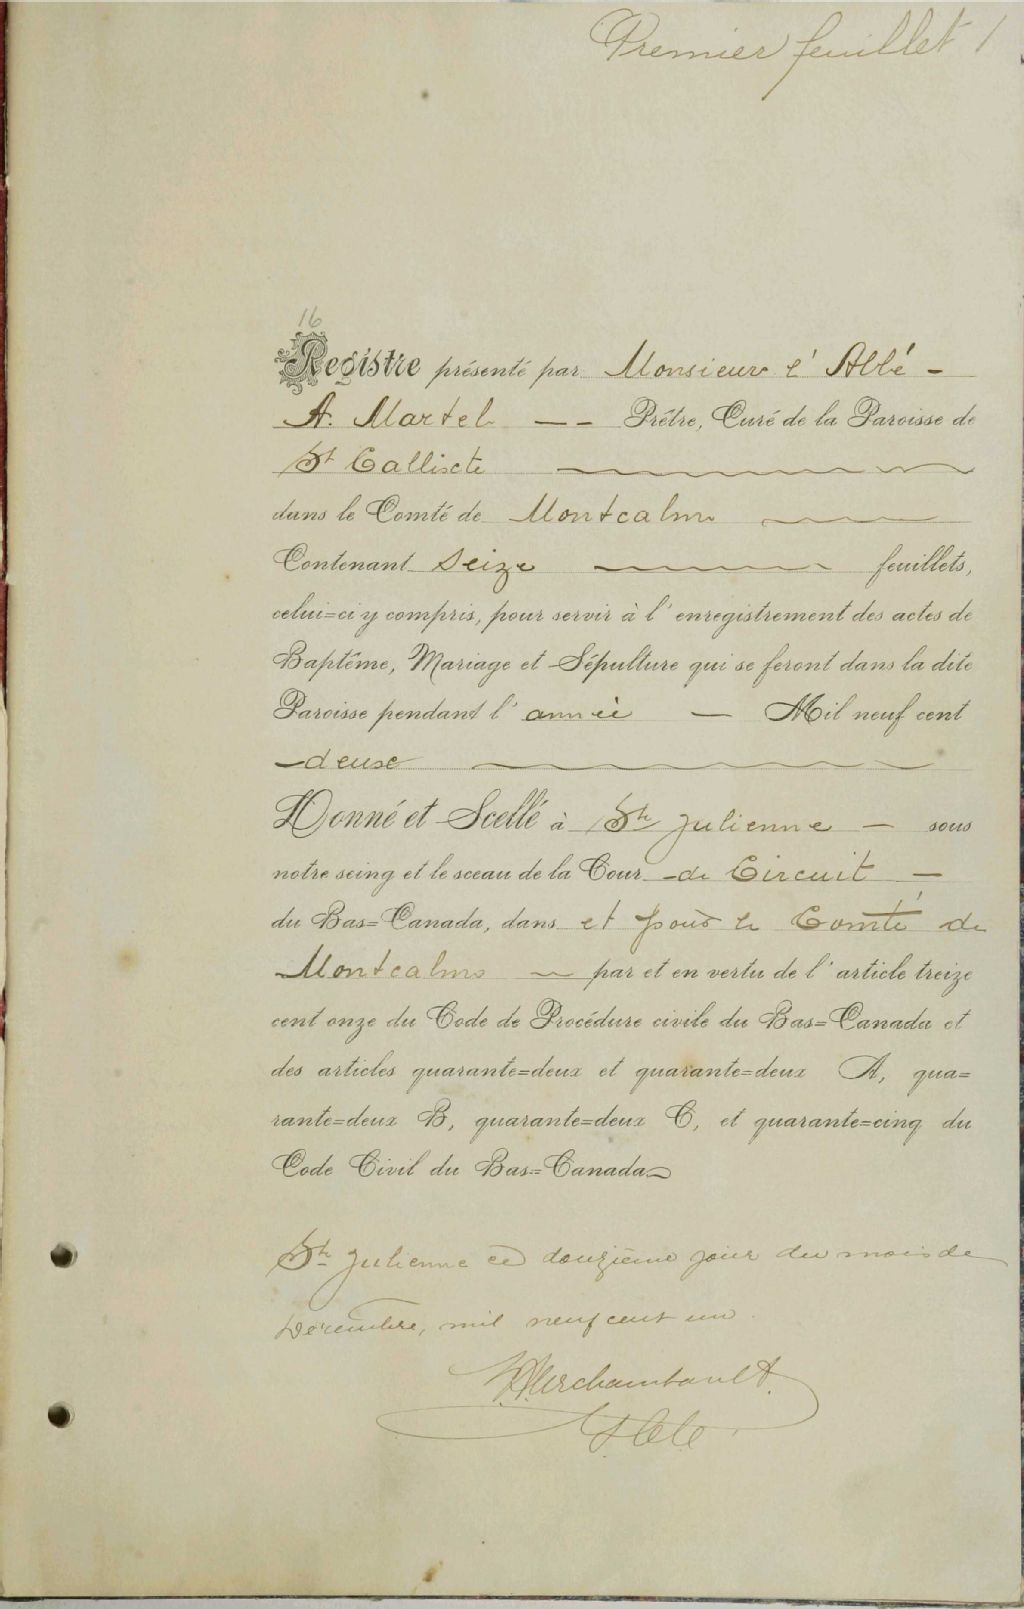 Premier feuillet 1
16
Registre présenté par Monsieur l'Abbé -
A. Martel — — Prêtre, Curé de la Paroisse de
St Callixte
dans le Comté de Montcalm
Contenant Seize feuillets,
celui=ci y compris, pour servir à l'enregistrement des actes de
Baptême, Mariage et Sépulture qui se feront dans la dite
Paroisse pendant l'année — Mil neuf cent
- deux
Donné et Scellé à Ste Julienne — sous
notre seing et le sceau de la Cour - de Circuit —
du Bas=Canada, dans et pour le Comté de
Montcalm — par et en vertu de l'article treize
cent onze du Code de Procédure civile du Bas=Canada et
des articles quarante=deux et quarante=deux A, qua=
rante=deux B, quarante=deux C, et quarante=cinq du
Code Civil du Bas=Canada
Ste Julienne ce douzième jour du mois de
Décembre, mil neuf cent un.
Archambault